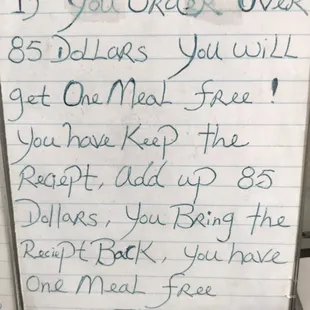 1) You ORDER OVER
85 DOLLARS You will
get One Meal free!
You have Keep the
Reciept, add up 85
Dollars, You Bring the
Reciept Back, you have
One Meal free